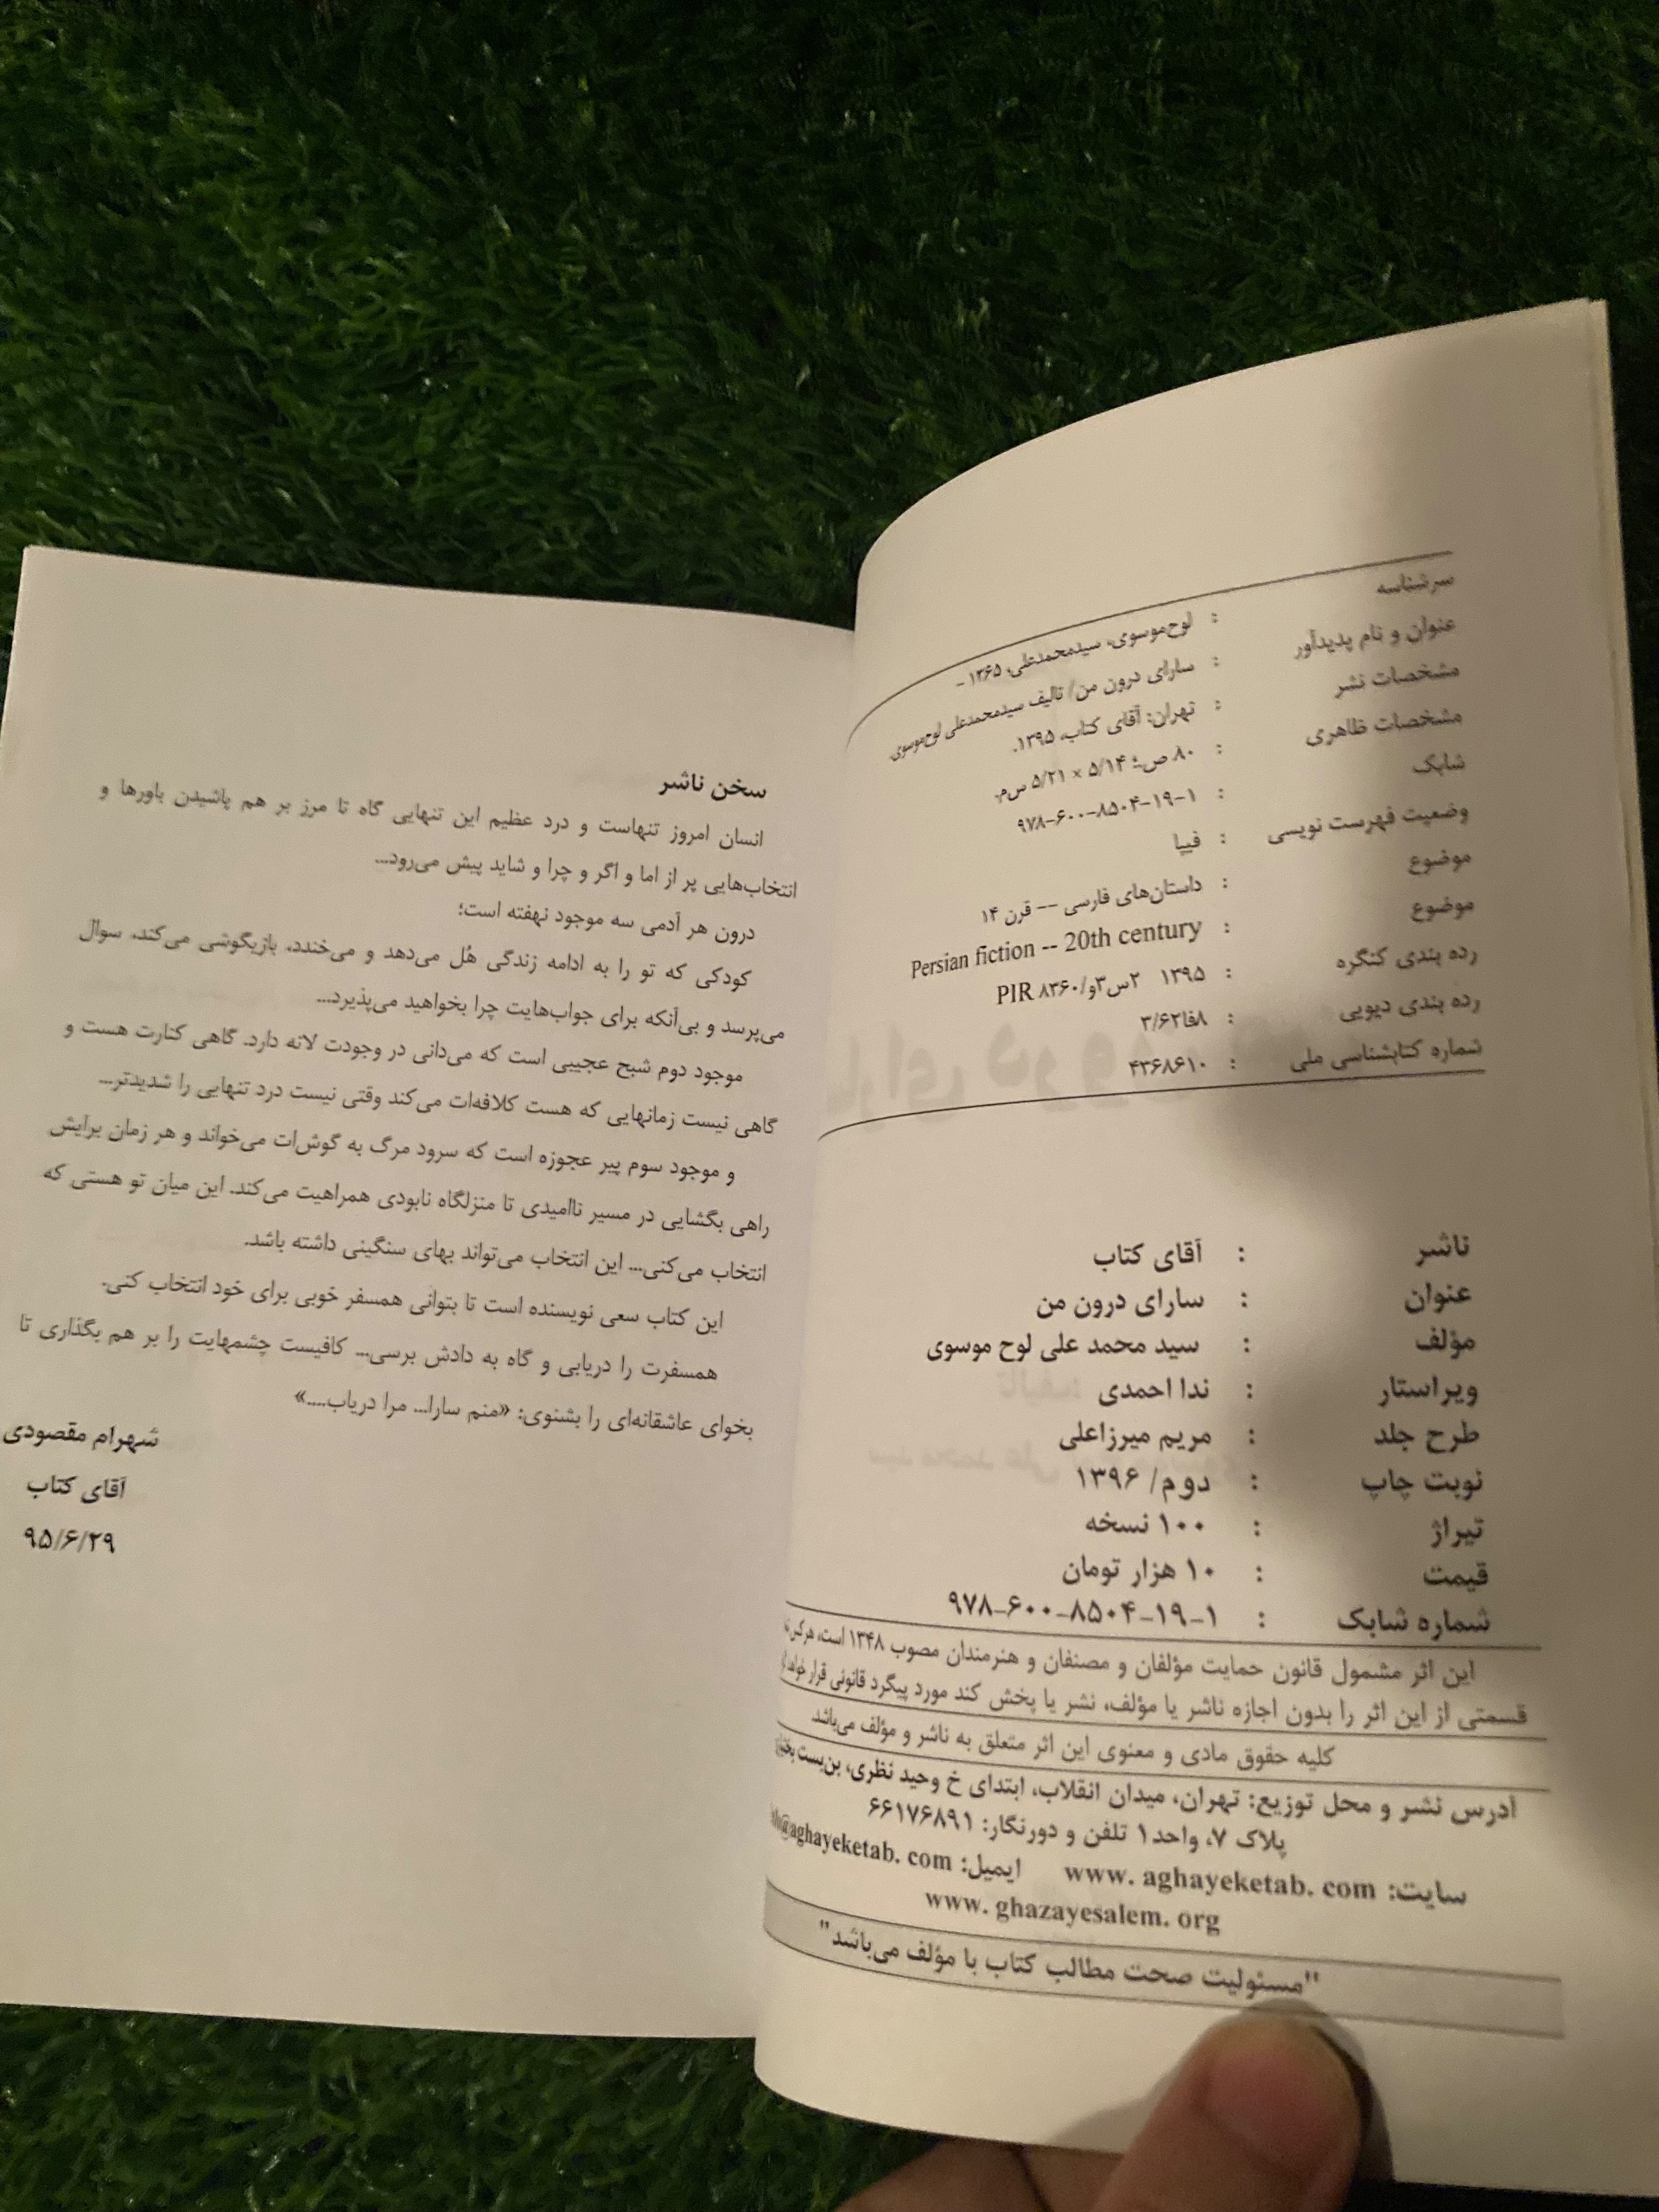 سرشناسه : لوح‌موسوی، سیدمحمدعلی، ۱۳۶۵ -
عنوان و نام پدیدآور : سارای درون من/ تالیف سیدمحمدعلی لوح‌موسوی.
مشخصات نشر : تهران: آقای کتاب، ۱۳۹۵.
مشخصات ظاهری : ۸۰ ص.؛ ۵/۱۴ × ۵/۲۱ س‌م.
شابک : ۹۷۸-۶۰۰-۸۵۰۴-۱۹-۱
وضعیت فهرست نویسی : فیپا
موضوع : داستان‌های فارسی -- قرن ۱۴
موضوع : Persian fiction -- 20th century
رده بندی کنگره : ۱۳۹۵ ۲س۳و/PIR ۸۳۶۰
رده بندی دیویی : ۸فا۳/۶۲
شماره کتابشناسی ملی : ۴۳۶۸۶۱۰
ناشر : آقای کتاب
عنوان : سارای درون من
مؤلف : سید محمد علی لوح موسوی
ویراستار : ندا احمدی
طرح جلد : مریم میرزاعلی
نوبت چاپ : دوم/ ۱۳۹۶
تیراژ : ۱۰۰ نسخه
قیمت : ۱۰ هزار تومان
شماره شابک : ۹۷۸-۶۰۰-۸۵۰۴-۱۹-۱
این اثر مشمول قانون حمایت مؤلفان و مصنفان و هنرمندان مصوب ۱۳۴۸ است، هرکس
قسمتی از این اثر را بدون اجازه ناشر یا مؤلف، نشر یا پخش کند مورد پیگرد قانونی قرار خواهد
کلیه حقوق مادی و معنوی این اثر متعلق به ناشر و مؤلف می‌باشد.
آدرس نشر و محل توزیع: تهران، میدان انقلاب، ابتدای خ وحید نظری، بن‌بست
پلاک ۷، واحد۱ تلفن و دورنگار: ۶۶۱۷۶۸۹۱
سایت: www. aghayeketab. com ایمیل: @aghayeketab. com
www. ghazayesalem. org
"مسئولیت صحت مطالب کتاب با مؤلف می‌باشد"
سخن ناشر
انسان امروز تنهاست و درد عظیم این تنهایی گاه تا مرز بر هم پاشیدن باورها و
انتخاب‌هایی پر از اما و اگر و چرا و شاید پیش می‌رود...
درون هر آدمی سه موجود نهفته است؛
کودکی که تو را به ادامه زندگی هُل می‌دهد و می‌خندد، بازیگوشی می‌کند، سوال
می‌پرسد و بی‌آنکه برای جواب‌هایت چرا بخواهید می‌پذیرد...
موجود دوم شبح عجیبی است که می‌دانی در وجودت لانه دارد. گاهی کنارت هست و
گاهی نیست زمانهایی که هست کلافه‌ات می‌کند وقتی نیست درد تنهایی را شدیدتر...
و موجود سوم پیر عجوزه است که سرود مرگ به گوش‌ات می‌خواند و هر زمان برایش
راهی بگشایی در مسیر ناامیدی تا منزلگاه نابودی همراهیت می‌کند. این میان تو هستی که
انتخاب می‌کنی... این انتخاب می‌تواند بهای سنگینی داشته باشد.
این کتاب سعی نویسنده است تا بتوانی همسفر خوبی برای خود انتخاب کنی.
همسفرت را دریابی و گاه به دادش برسی... کافیست چشمهایت را بر هم بگذاری تا
بخوای عاشقانه‌ای را بشنوی: «منم سارا... مرا دریاب....»
شهرام مقصودی
آقای کتاب
۹۵/۶/۲۹